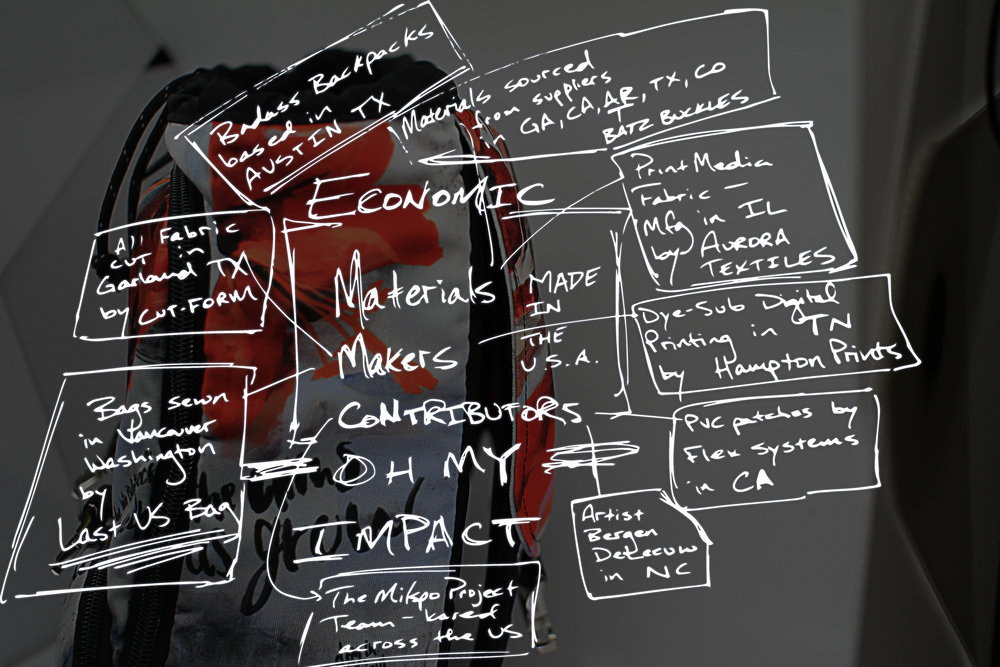 Badass Backpacks
based in
AUSTIN TX
Materials sourced
from suppliers
GA, CA, AR, TX, CO
BATZ BUCKLES
ECONOMIC
Print Media
Fabric —
Mfg in IL
by AURORA
TEXTILES
All Fabric
CUT in
Garland TX
by CUT-FORM
Materials
MADE
IN
THE
U.S.A.
Makers
CONTRIBUTORS
Dye-Sub Digital
Printing in TN
by Hampton Prints
Bags sewn
in Vancouver
Washington
by
Last US Bag
PVC patches by
Flex Systems
in CA
OH MY
IMPACT
Artist
Bergen
in NC
The Milspo Project
Team - based
across the US